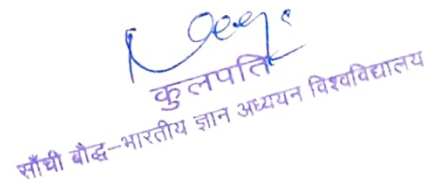 कुलपति
साँची बौद्ध-भारतीय ज्ञान अध्ययन विश्वविद्यालय